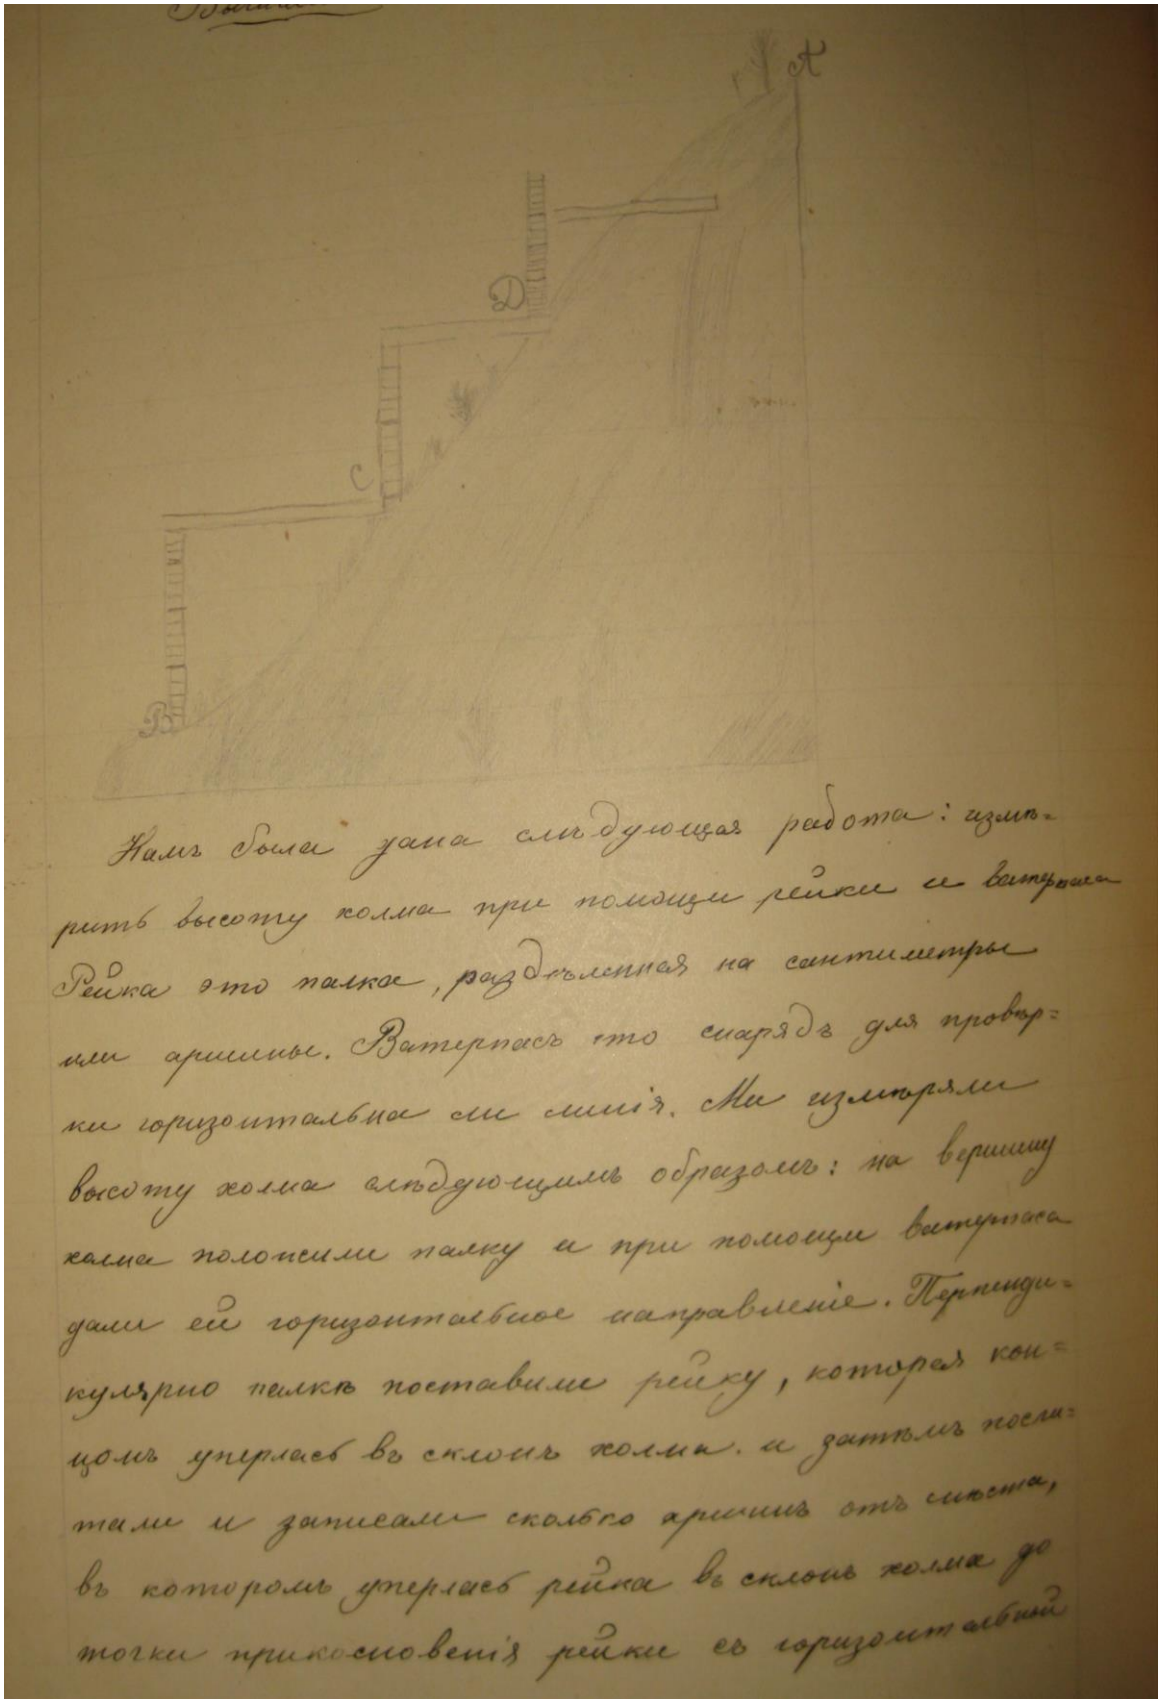 А
D
С
В
Намъ была дана слѣдующая работа: измѣ=
рить высоту холма при помощи рейки и ватерпаса
Рейка это палка, раздѣленная на сантиметры
или аршины. Ватерпасъ это снарядъ для провѣр=
ки горизонтальна ли линія. Мы измѣряли
высоту холма слѣдующимъ образомъ: на вершину
холма положили палку и при помощи ватерпаса
дали ей горизонтальное направленіе. Перпенди=
кулярно палкѣ поставили рейку, которая кон=
цомъ уперлась въ склонъ холма. и затѣмъ посчи=
тали и записали сколько аршинъ отъ мѣста,
въ которомъ уперлась рейка въ склонъ холма до
точки прикосновенія рейки съ горизонтальной